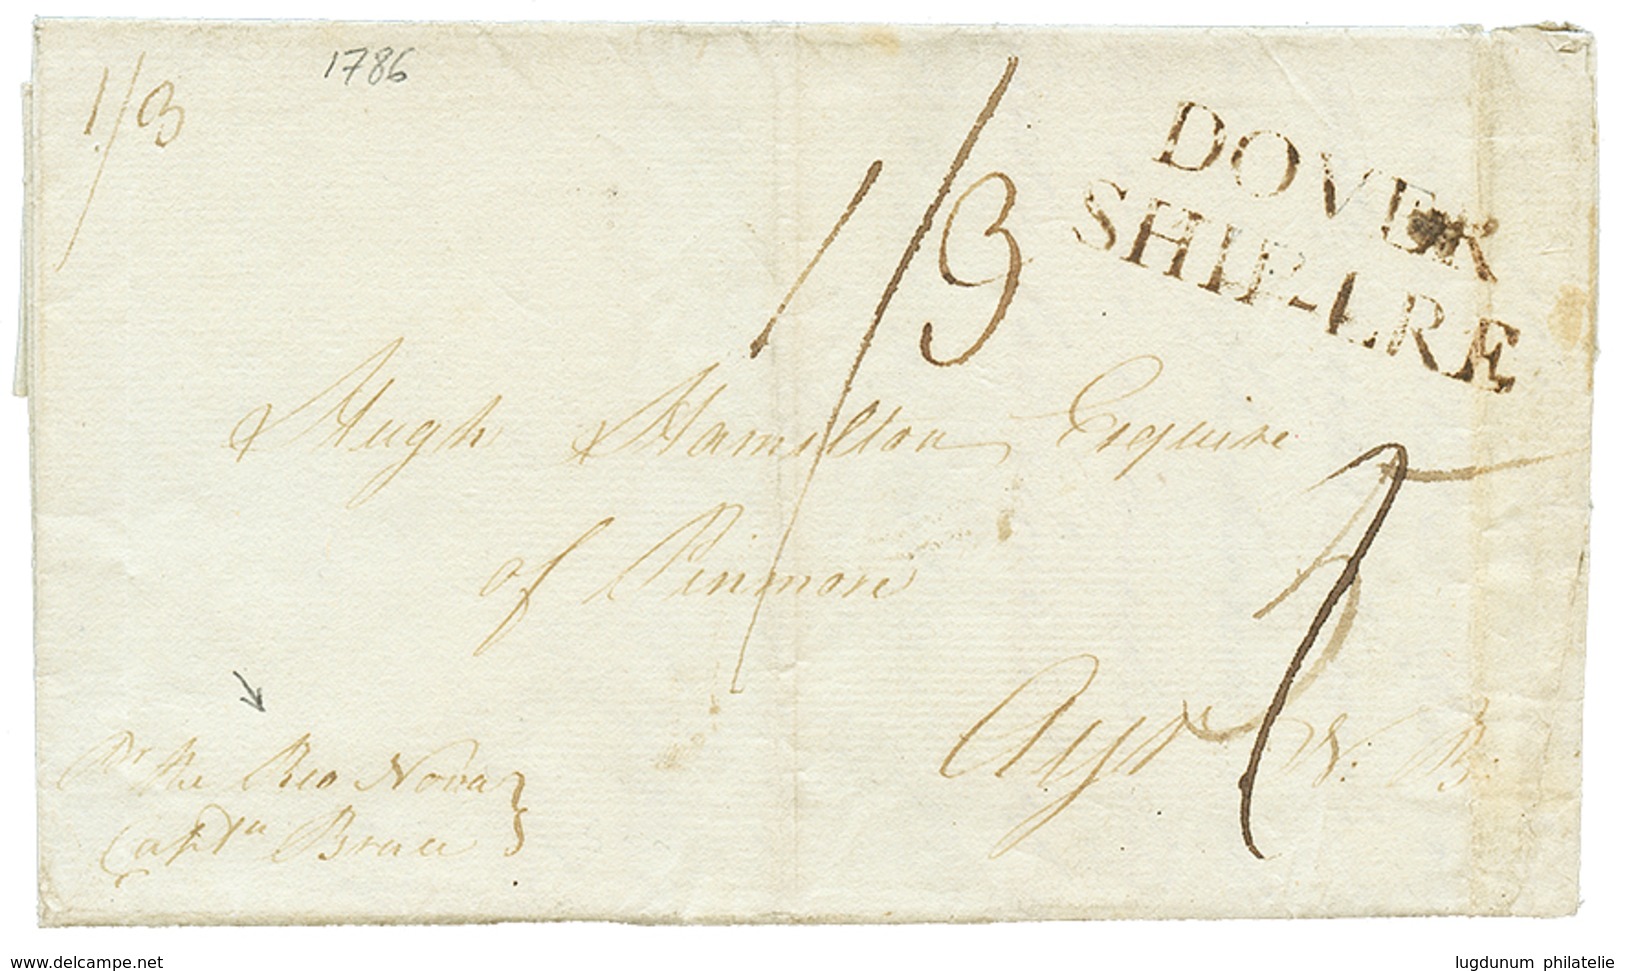 1786
1/3
1/3
DOVER
SHIP-LRE
Hugh Hamilton Esquire
of Pinmore
Ayr N. B.
Pr the Rio Nova
Captn Bruce
www.delcampe.net
lugdunum philatelie